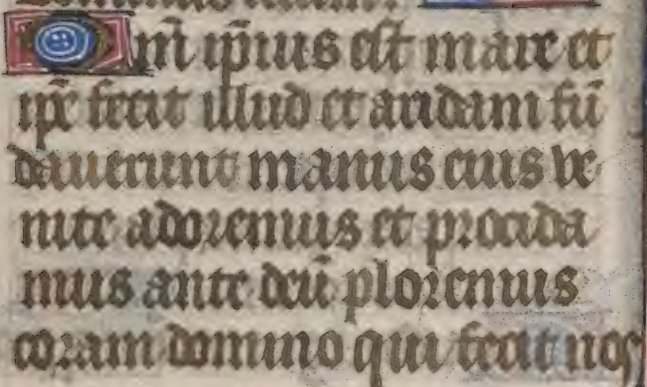 Qm̄ ip̄ius est mare et
ip̄e fecit illud et aridam fū
dauerunt manus eius ve
nite adoremus et procida
mus ante deū ploremus
coram domino qui fecit nos